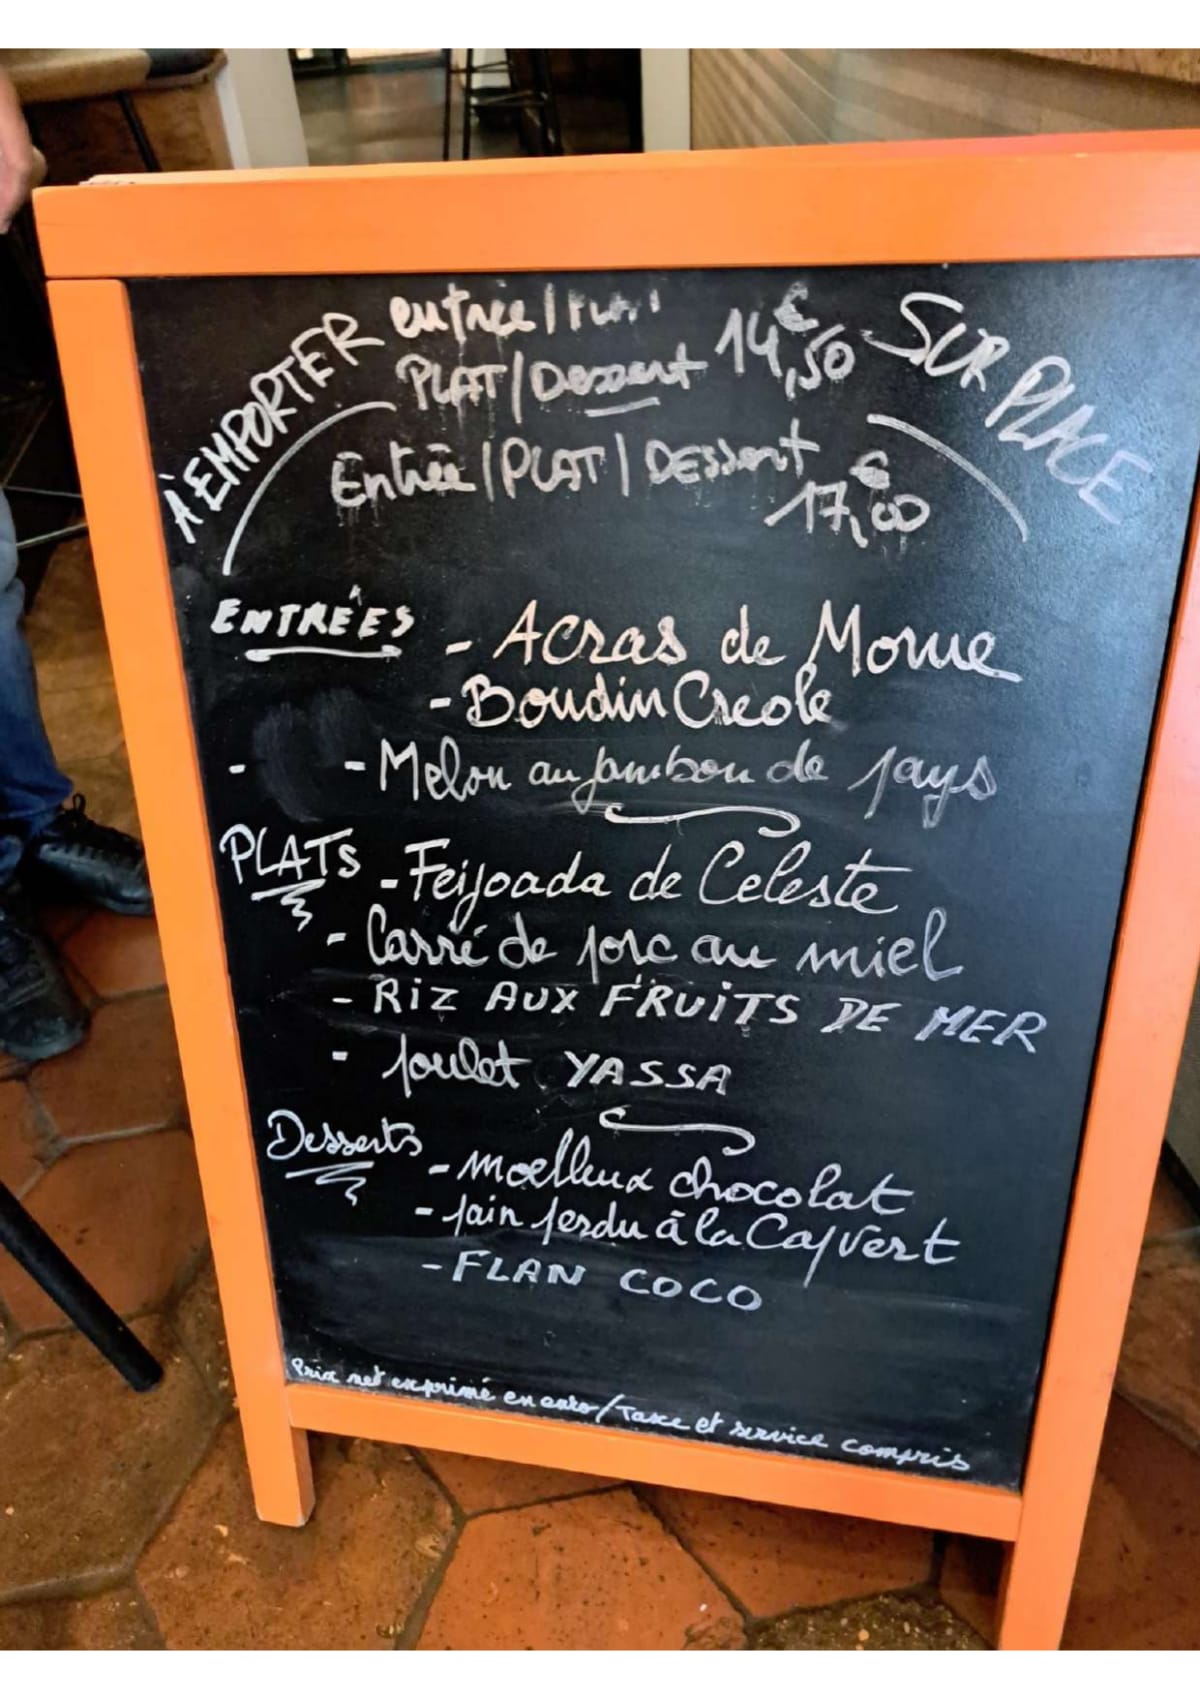 À EMPORTER
entrée / PLAT
PLAT / Dessert 14,50 €
SUR PLACE
Entrée / PLAT / DESSert
17,00 €
ENTRÉES
- Acras de Morue
- Boudin Creole
- - Melon au jambon de pays
PLATS
- Feijoada de Celeste
- Carré de porc au miel
- RiZ AUX FRUiTS DE MER
- Poulet YASSA
Desserts
- moelleux chocolat
- Pain perdu à la Cap Vert
- FLAN COCO
Prix net exprimé en euro / Taxe et service compris